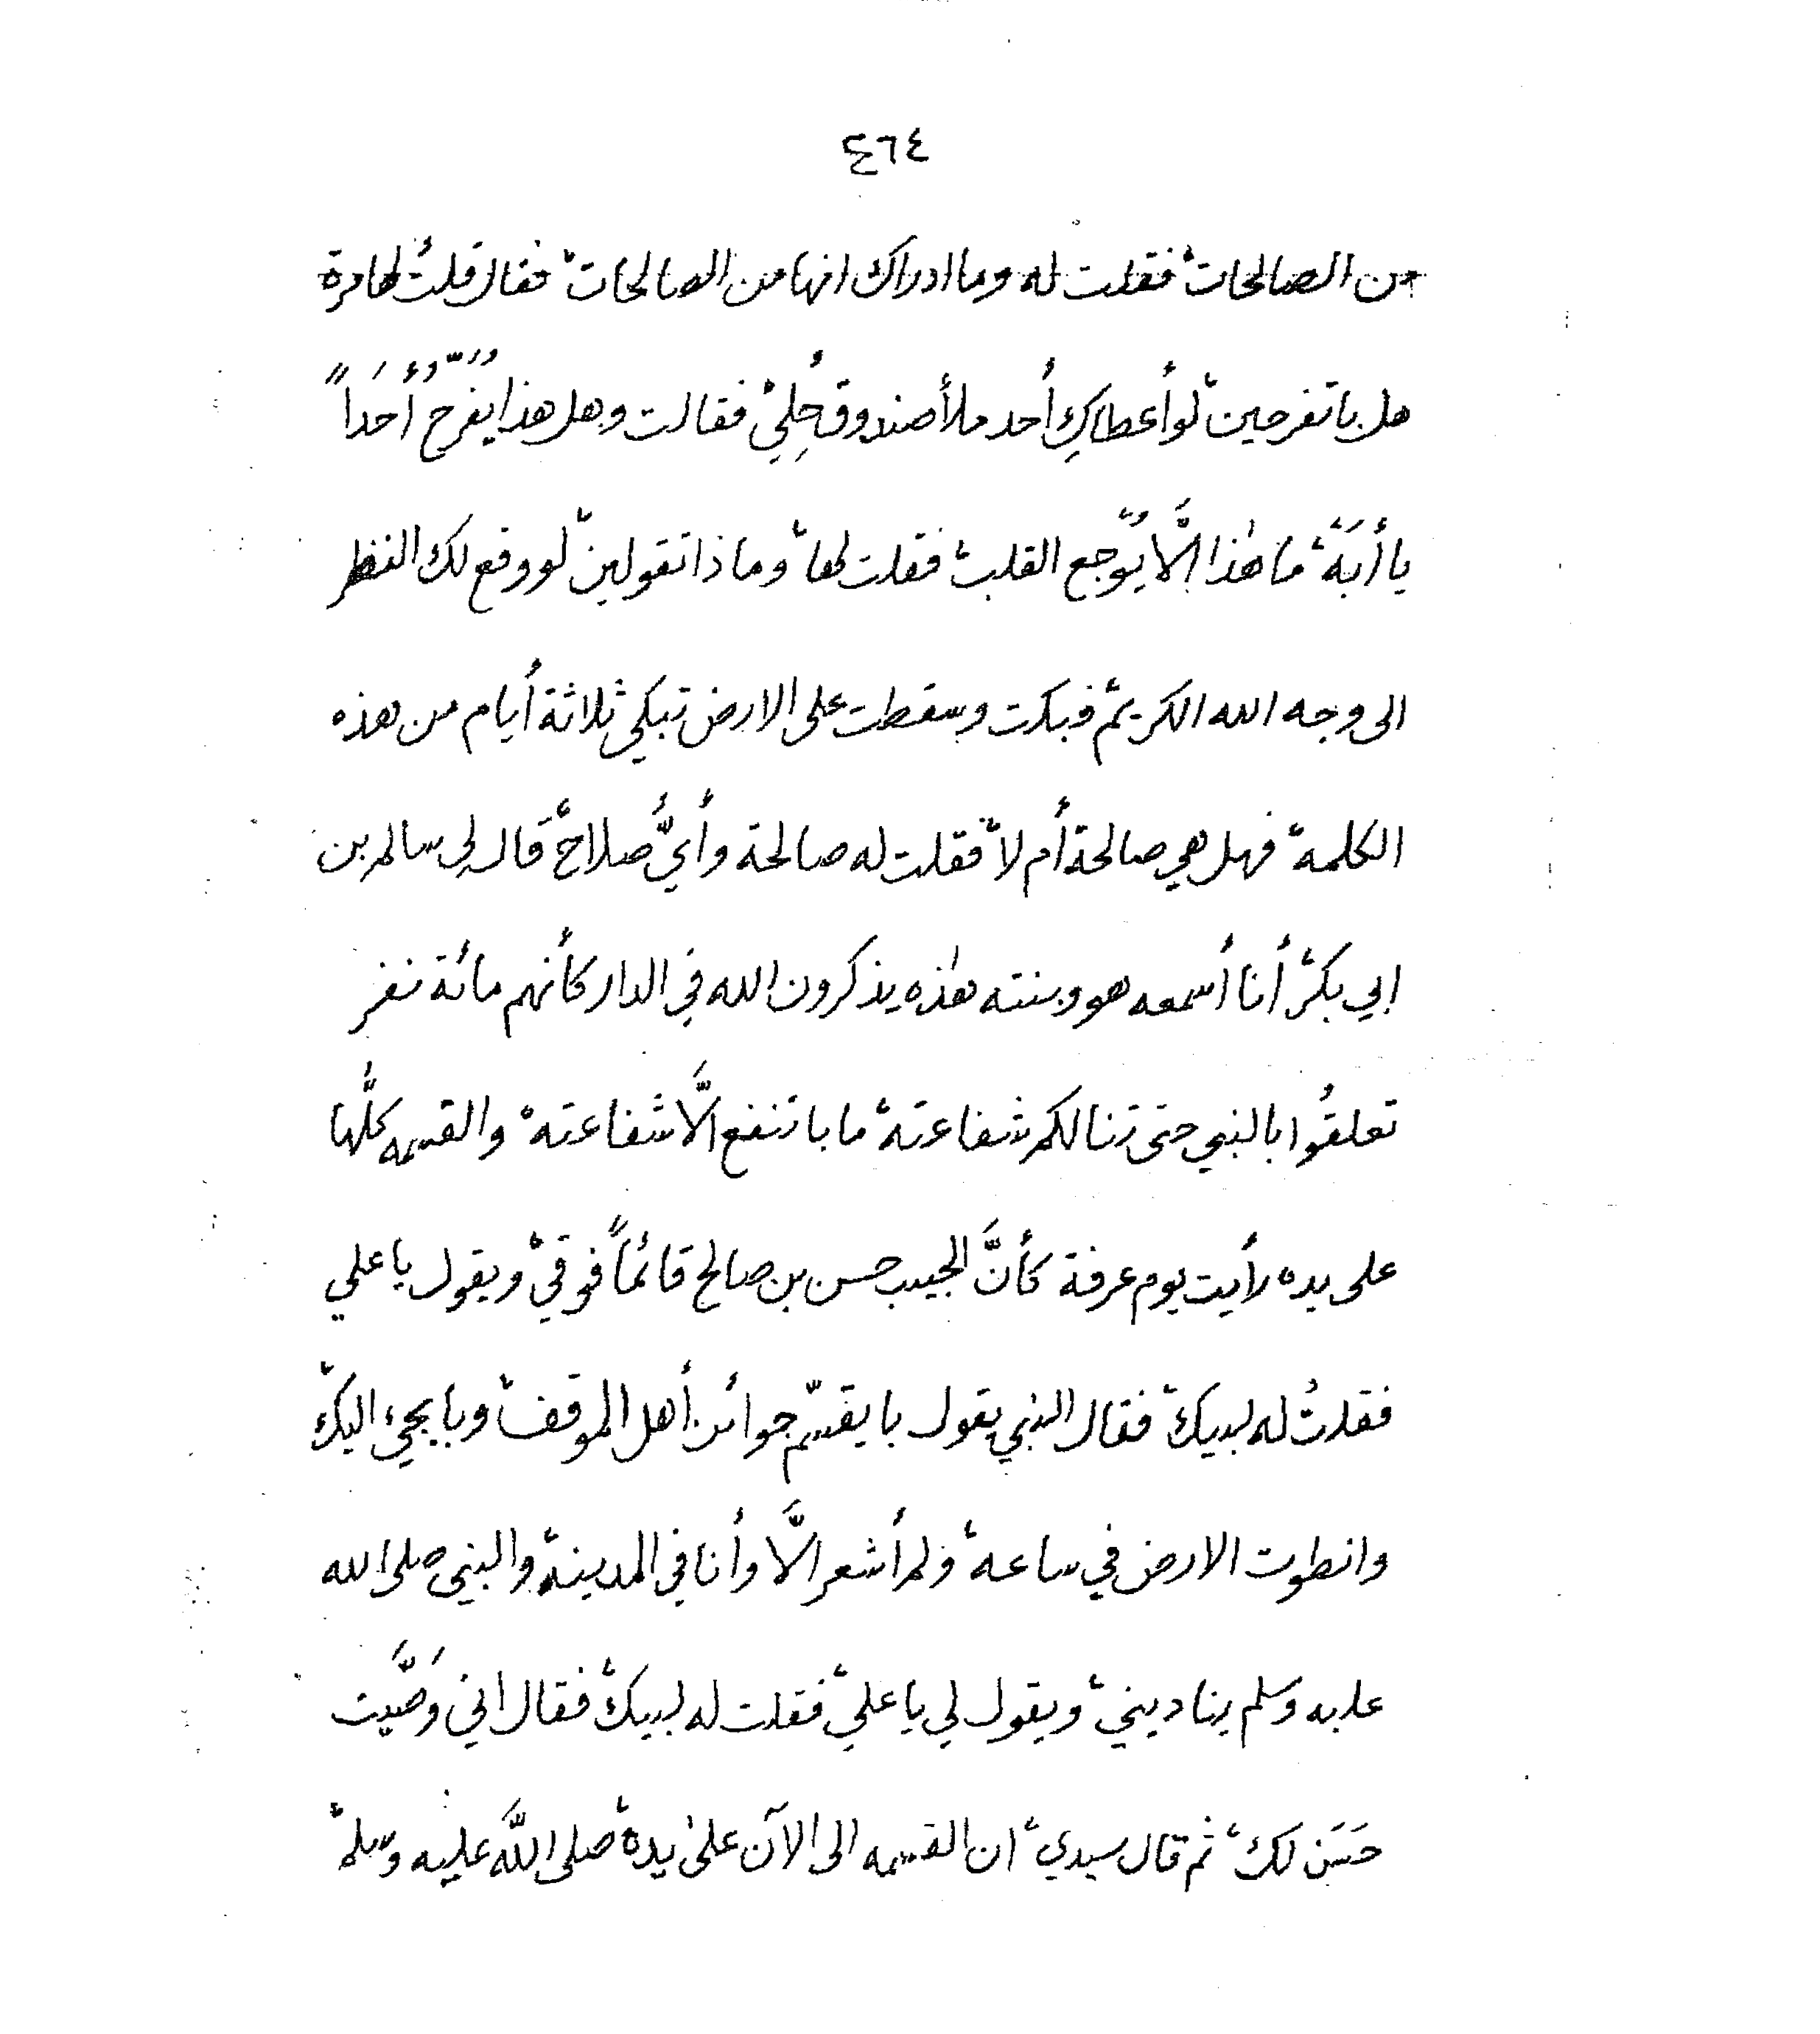 ٤٦٤
من الصالحات، فقلت له وما ادراك انها من الصالحات، فقال قلتُ لها مرة
هل با تفرحين، لو أعطاكِ أحد ملأ صندوق حُلِيْ، فقالت وهل هذا يُفَرِّحُ أحَداً
يا أبَهْ، ما هٰذا الَّا يُوَجع القلب، فقلت لها، وماذا تقولين، لو وقع لك النظر
الى وجه الله الكريم، فبكت وسقطت على الارض تبكي ثلاثة أيام من هذه
الكلمة، فهل هي صالحة أم لا، فقلت له صالحة وأيُّ صلاح، قال لِي سالم بن
ابي بكر، أنا أسمعه هو وبنته هٰذه يذكرون الله في الدار كأنهم مائة نفر
تعلقُوا بالنبي حتى تنالكم شفاعته، ما با تنفع الَّا شفاعته، والقسمه كلُّها
على يده رأيت يوم عرفة كأنَّ الحبيب حسن بن صالح قائماً فوقي، ويقول يا علي
فقلتُ له لبيك، فقال النبي يقول با يقسّم جوائز أهل الموقف، وبا يجيء اليك،
وانطوت الارض في ساعة، ولم أشعر الَّا وأنا في المدينة، والنبي صلى الله
عليه وسلم يناديني، ويقول لي يا علي، فقلت له لبيك، فقال اني وَصَّيت
حَسَن لك، ثم قال سيدي، ان القسمه الى الآن علىٰ يده، صلى اللَّه عليه وسلم،